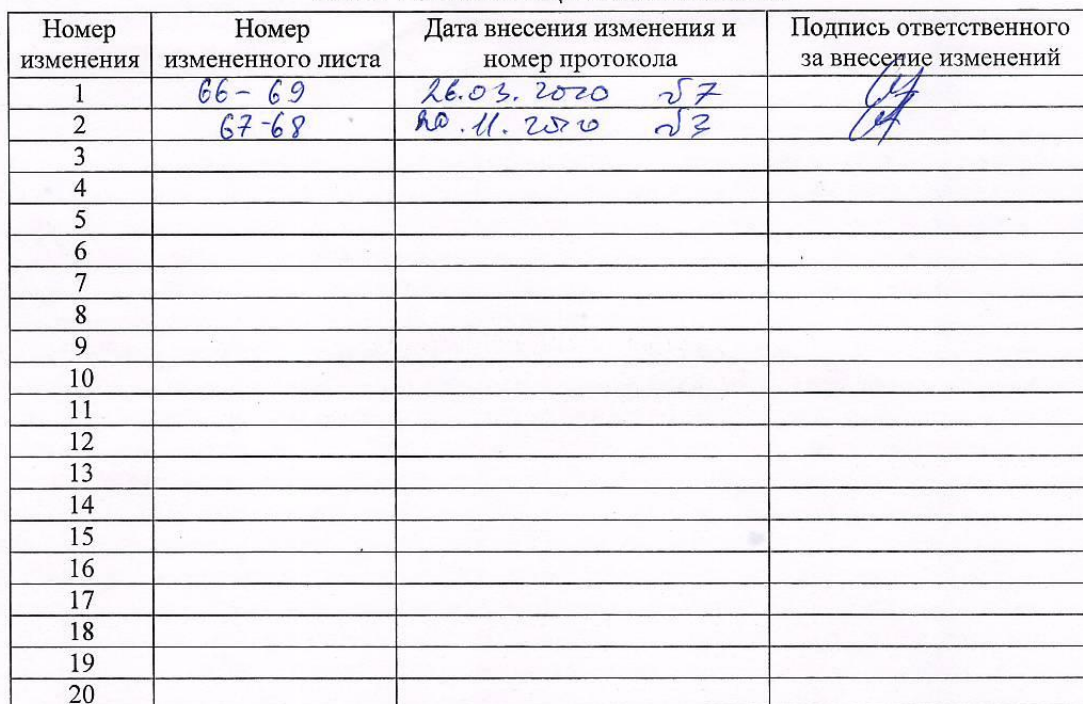 Номер изменения Номер измененного листа Дата внесения изменения и номер протокола Подпись ответственного за внесение изменений
1 66-69 26.03.2020 №7
2 67-68 20.11.2020 №3
3
4
5
6
7
8
9
10
11
12
13
14
15
16
17
18
19
20